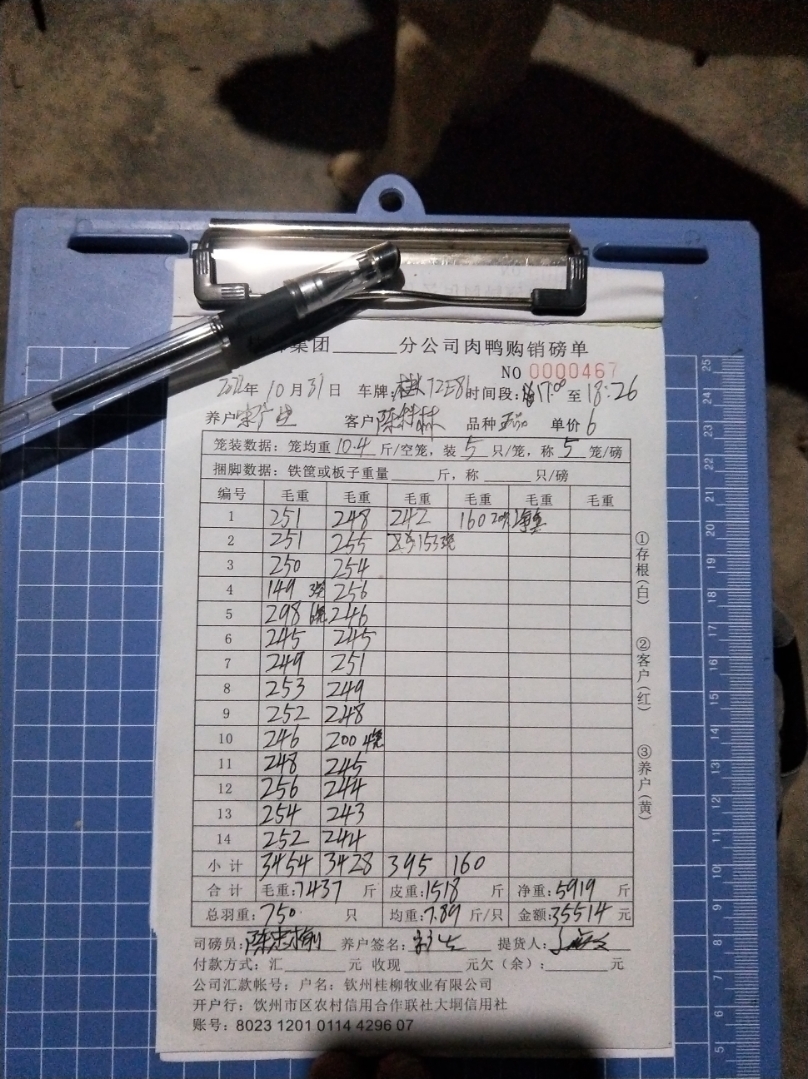 集团______分公司肉鸭购销磅单
NO 0000467
2022年 10月31日 车牌: 72E81 时间段: 17:00 至 18:26
养户 客户 陈 林 品种 单价 6
笼装数据：笼均重 10.4 斤/空笼，装 5 只/笼，称 5 笼/磅
捆脚数据：铁筐或板子重量______斤，称______只/磅
编号 毛重 毛重 毛重 毛重 毛重 毛重
1 251 248 242 160 20只 净重
2 251 255 153 3笼
3 250 254
4 149 3笼 256
5 298 6笼 246
6 245 245
7 249 251
8 253 249
9 252 248
10 246 200 4笼
11 248 245
12 256 244
13 254 243
14 252 244
小计 3454 3428 395 160
合计 毛重: 7437 斤 皮重: 1518 斤 净重: 5919 斤
总羽重: 750 只 均重: 7.89 斤/只 金额: 35514 元
司磅员: 陈 养户签名: 提货人:
付款方式：汇______元 收现______元欠（余）:______元
公司汇款帐号：户名：钦州桂柳牧业有限公司
开户行：钦州市区农村信用合作联社大垌信用社
账号：8023 1201 0114 4296 07
①存根(白)
②客户(红)
③养户(黄)
25
24
23
22
21
20
19
18
17
16
15
14
13
12
11
10
9
8
7
6
5